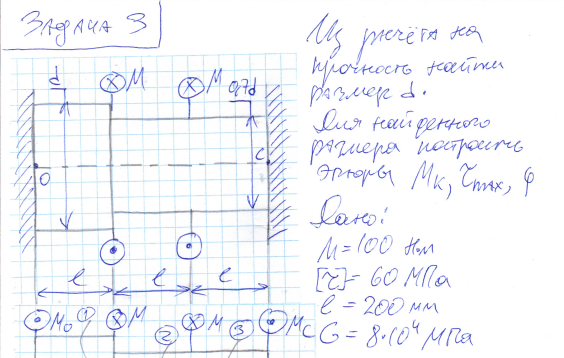 Задача 3
Из расчёта на
прочность найти
размер d.
Для найденного
размера построить
эпюры Mк, τmax, φ
Дано:
M = 100 Н·м
[τ] = 60 МПа
l = 200 мм
G = 8·10⁴ МПа
d M M 0,7d
O C
l l l
M₀ 1 M 2 M 3 Mc